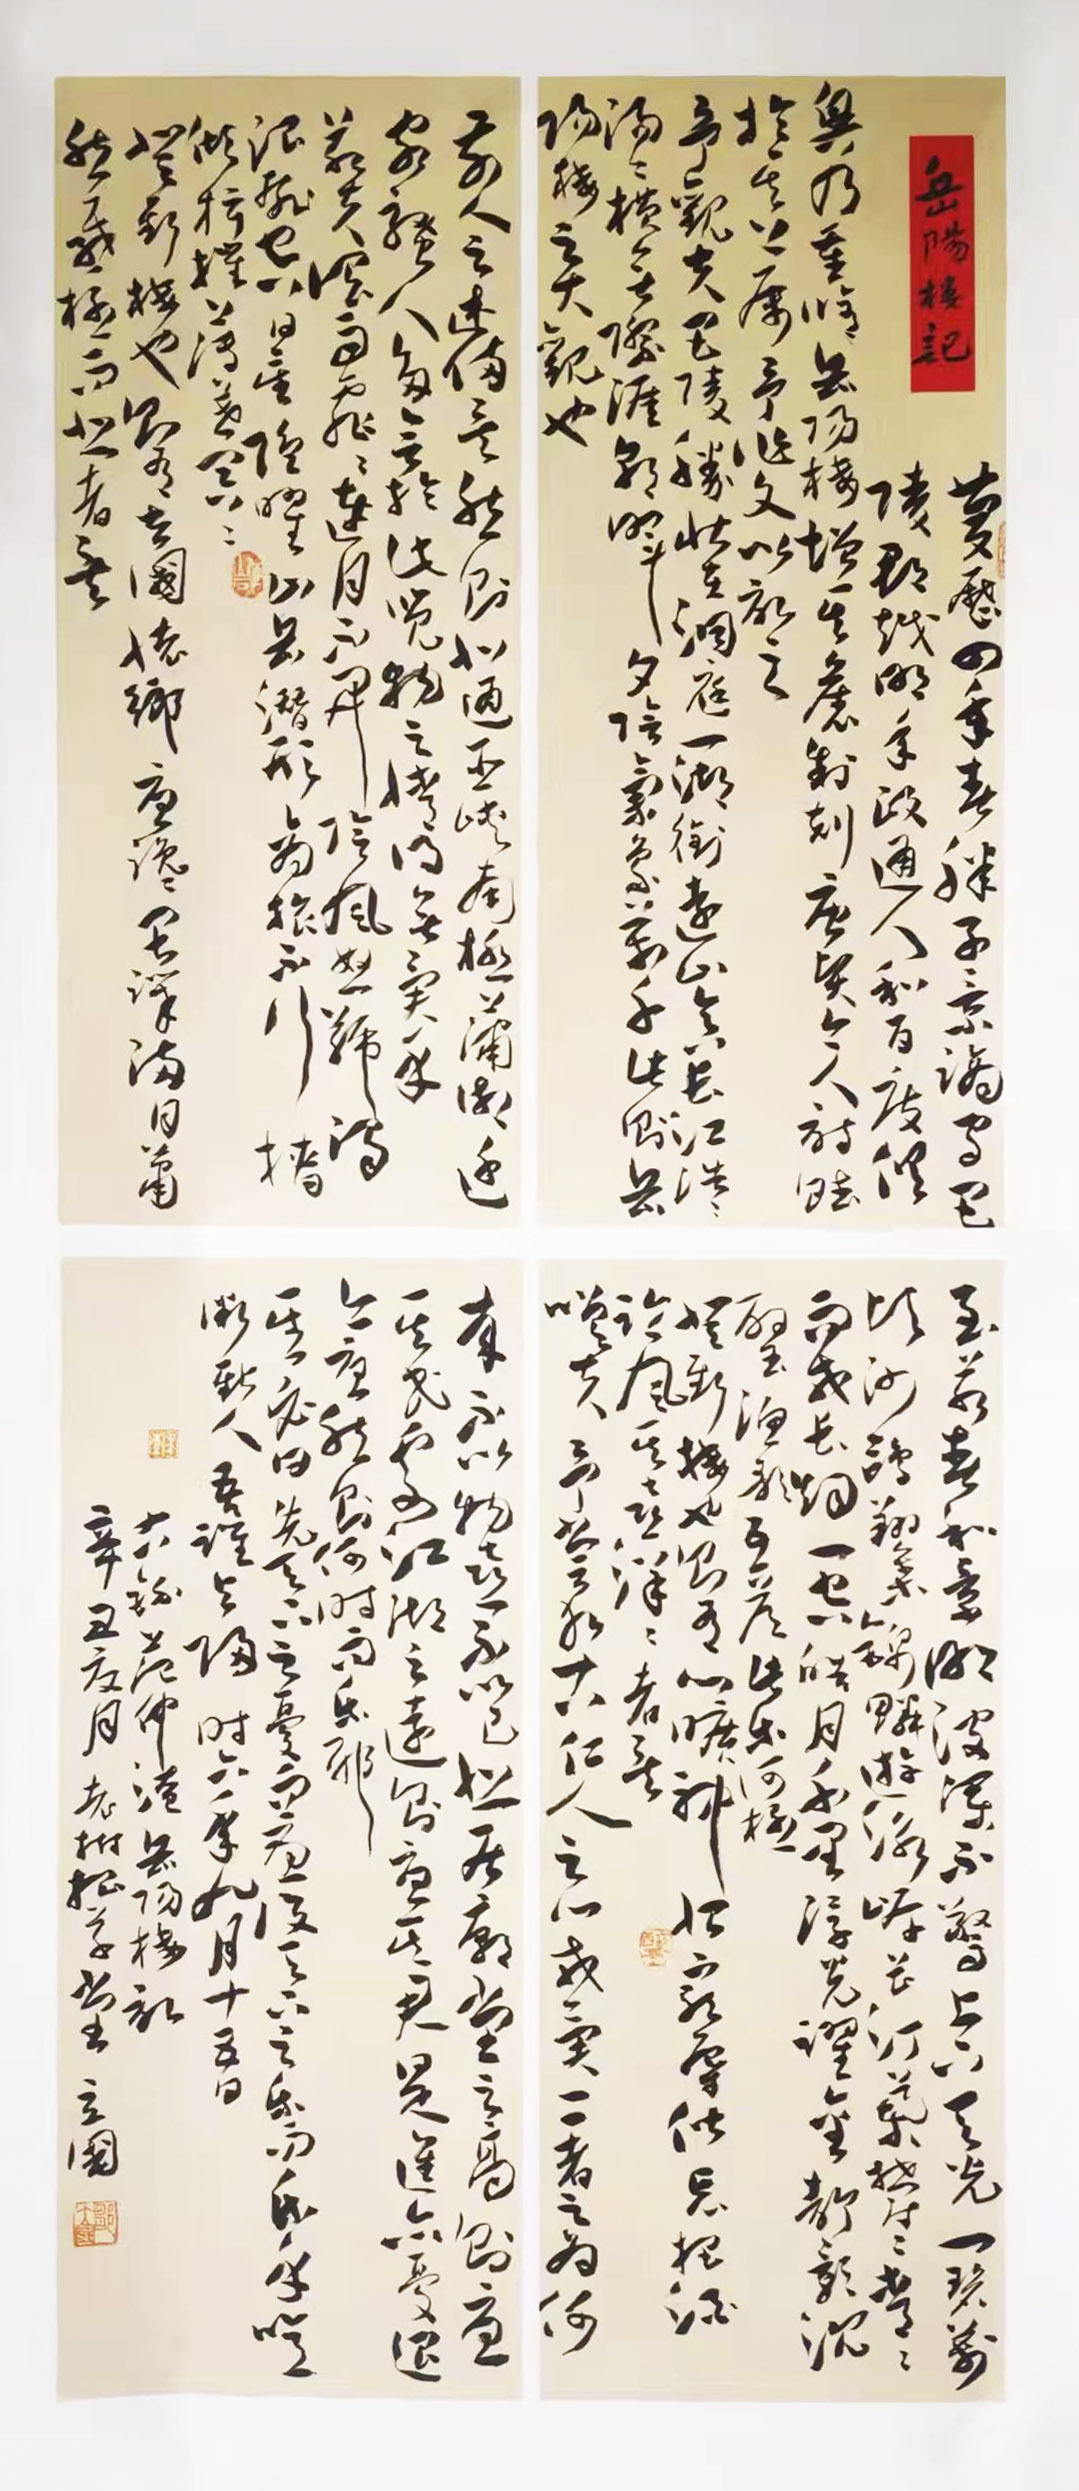 岳陽樓記
慶歷四年春滕子京謫守巴
陵郡越明年政通人和百廢俱
興乃重脩岳陽樓增其舊制刻唐賢今人詩賦
於其上屬予作文以記之
予觀夫巴陵勝狀在洞庭一湖銜遠山吞長江浩〻
湯〻橫無際涯朝暉夕陰氣象萬千此則岳
陽樓之大觀也
前人之述備矣然則北通巫峽南極瀟湘遷
客騷人多會於此覽物之情得無異乎
若夫霪雨霏〻連月不開陰風怒號濁
浪排空日星隱曜山岳潛形商旅不行檣
傾楫摧薄暮冥〻
登斯樓也則有去國懷鄉憂讒畏譏滿目蕭
然感極而悲者矣
至若春和景明波瀾不驚上下天光一碧萬
頃沙鷗翔集錦鱗游泳岸芷汀蘭郁〻青〻
而或長煙一空皓月千里浮光躍金靜影沉
璧漁歌互答此樂何極
登斯樓也則有心曠神怡寵辱偕忘把酒
臨風其喜洋〻者矣
嗟夫予嘗求古仁人之心或異二者之為何
哉不以物喜不以己悲居廟堂之高則憂
其民處江湖之遠則憂其君是進亦憂退
亦憂然則何時而樂耶
其必曰先天下之憂而憂後天下之樂而樂乎噫
微斯人吾誰與歸時六年九月十五日
范仲淹岳陽樓記
辛丑夏月老樹根草堂立國